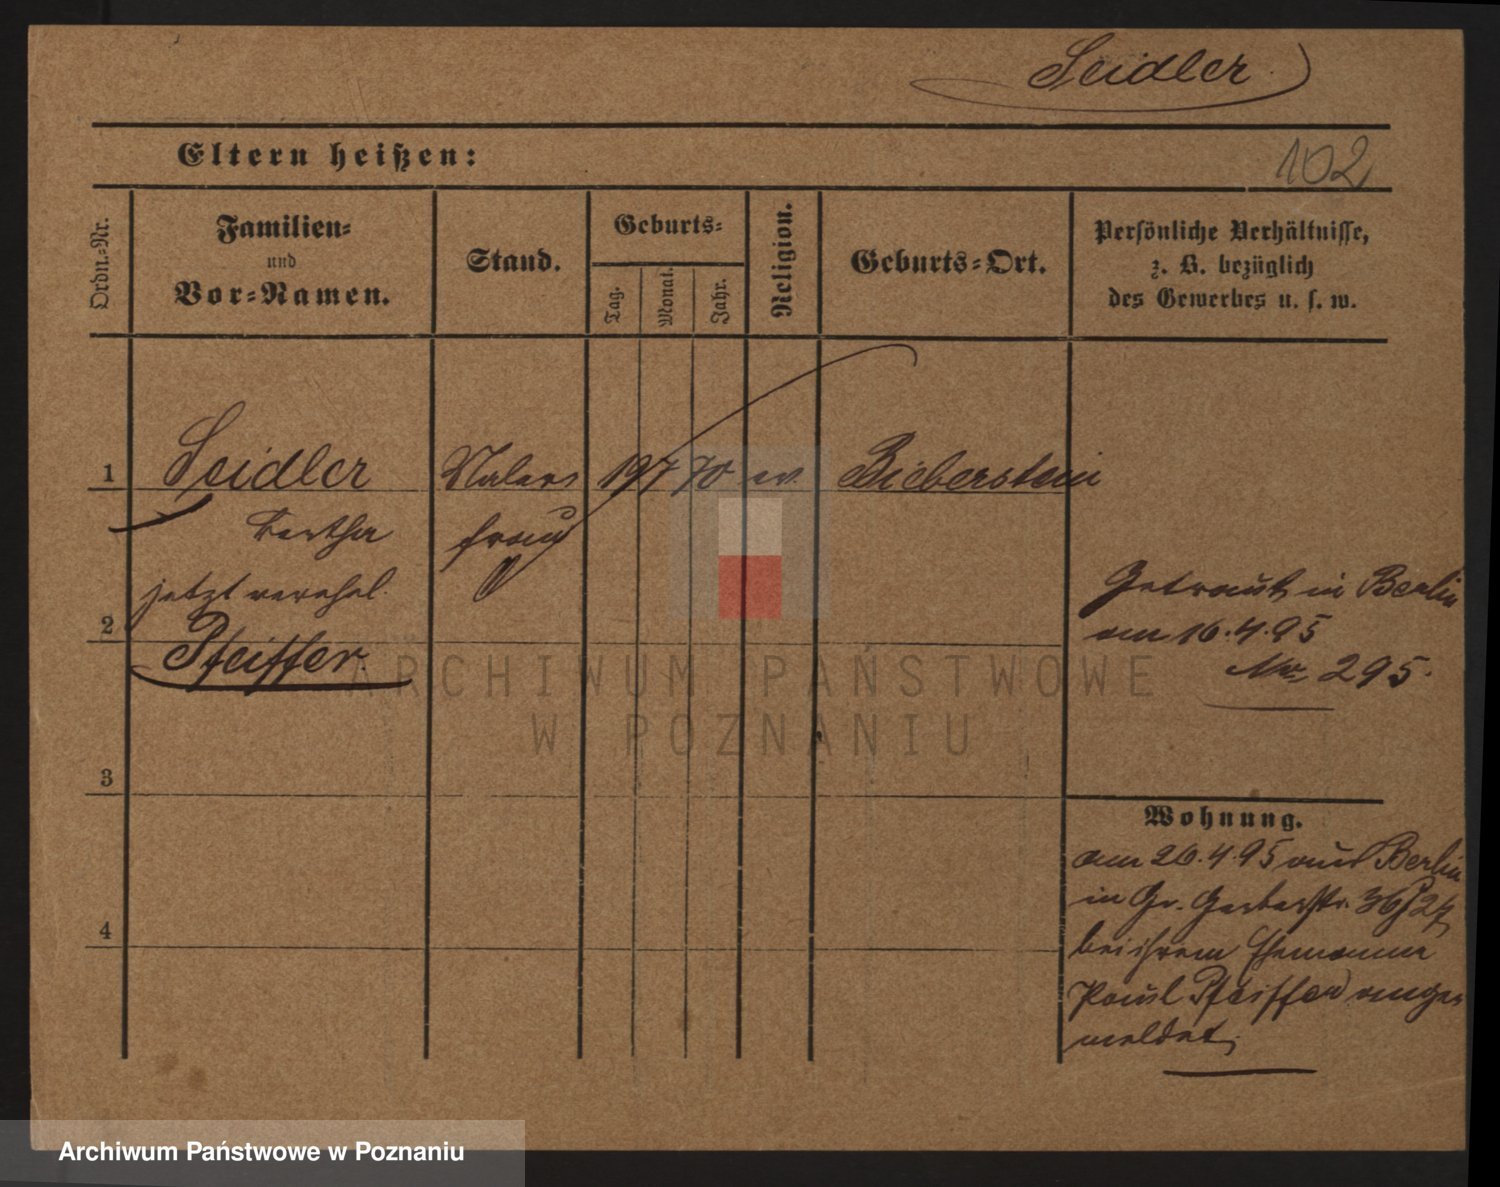 Seidler
Eltern heißen:
102
Ordn.-Nr.
Familien-
und
Vor-Namen.
Stand.
Geburts-
Tag.
Monat.
Jahr.
Religion.
Geburts-Ort.
Persönliche Verhältnisse,
z. B. bezüglich
des Gewerbes u. s. w.
1
Seidler
Malers
19
7
70
ev.
Bieberstein
Bertha
frau
jetzt verehel.
Getraut in Berlin
2
Pfeiffer.
am 16.4.95
No 295.
ARCHIWUM PAŃSTWOWE
W POZNANIU
3
Wohnung.
am 26.4.95 aus Berlin
in Gr. Gerberstr. 36
4
bei ihrem Ehemanne
Paul Pfeiffer ange-
meldet.
Archiwum Państwowe w Poznaniu